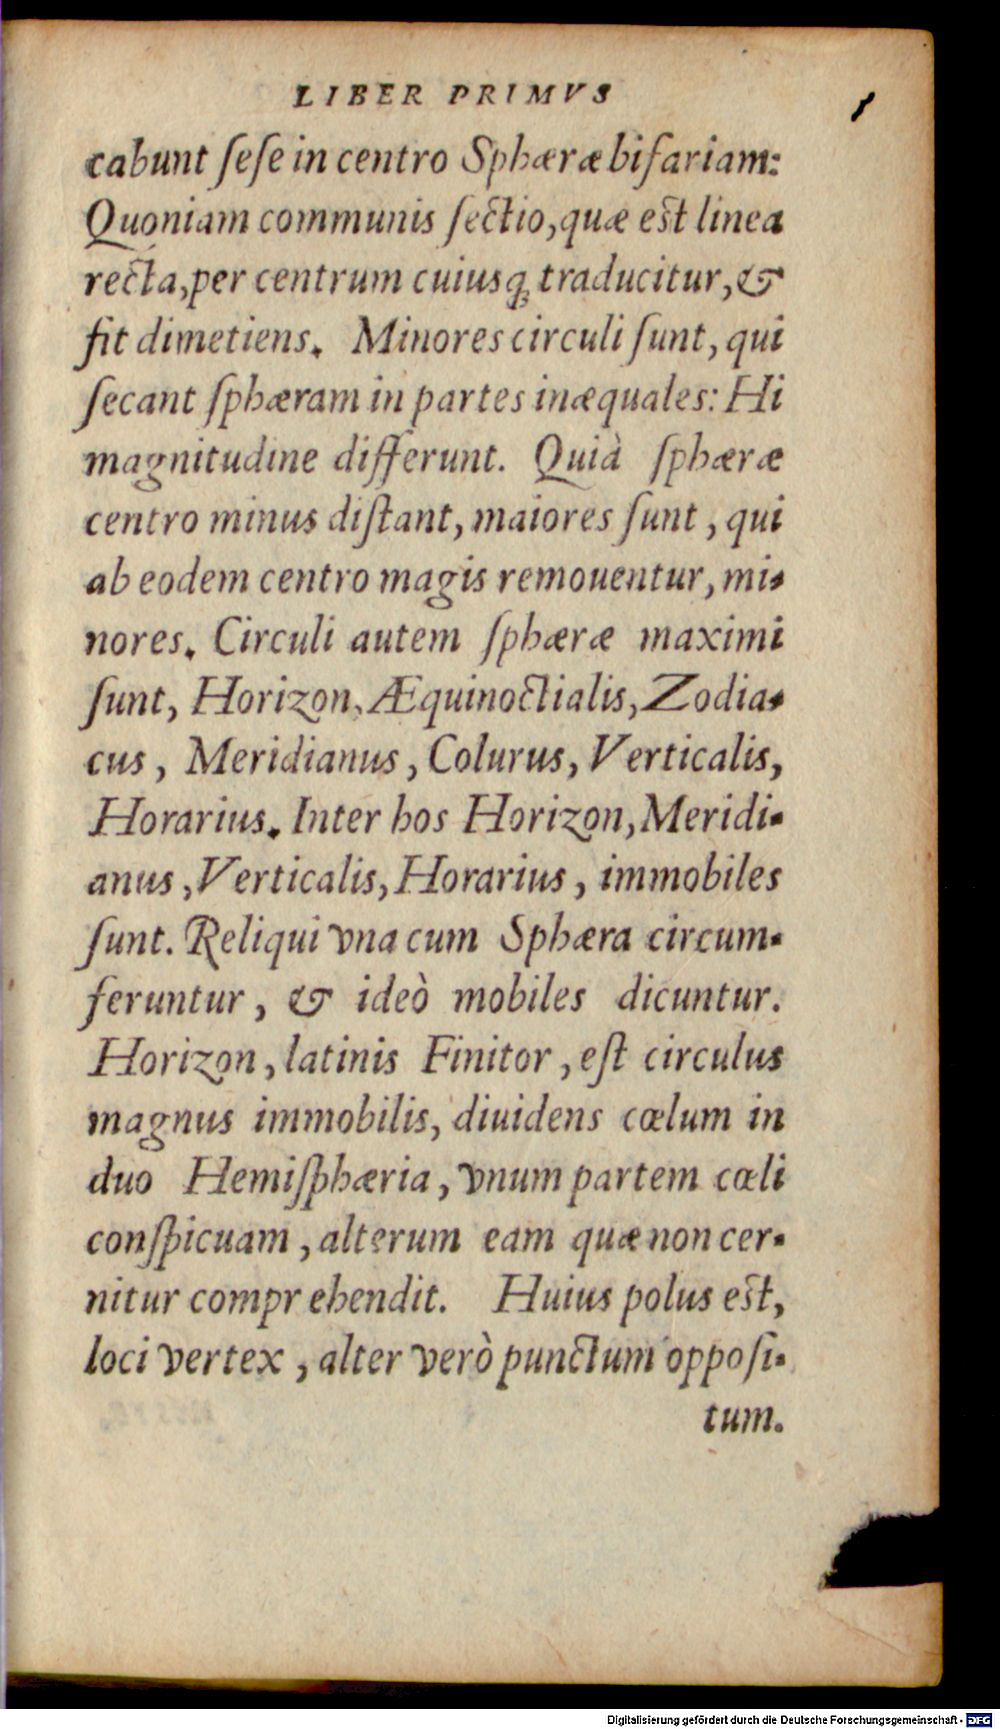 LIBER PRIMVS
cabunt ſeſe in centro Sphæræ bifariam:
Quoniam communis ſectio, quæ est linea
recta, per centrum cuiusq́; traducitur, &
fit dimetiens. Minores circuli ſunt, qui
ſecant ſphæram in partes inæquales: Hi
magnitudine differunt. Quià ſphæræ
centro minus diſtant, maiores ſunt, qui
ab eodem centro magis remouentur, mi-
nores. Circuli autem ſphæræ maximi
ſunt, Horizon, Æquinoctialis, Zodia-
cus, Meridianus, Colurus, Verticalis,
Horarius. Inter hos Horizon, Meridi-
anus, Verticalis, Horarius, immobiles
ſunt. Reliqui vna cum Sphæra circum-
feruntur, & ideò mobiles dicuntur.
Horizon, latinis Finitor, eſt circulus
magnus immobilis, diuidens cœlum in
duo Hemiſphæria, vnum partem cœli
conſpicuam, alterum eam quæ non cer-
nitur compr ehendit. Huius polus est,
loci vertex, alter verò punctum oppoſi-
tum.
Digitalisierung gefördert durch die Deutsche Forschungsgemeinschaft - DFG